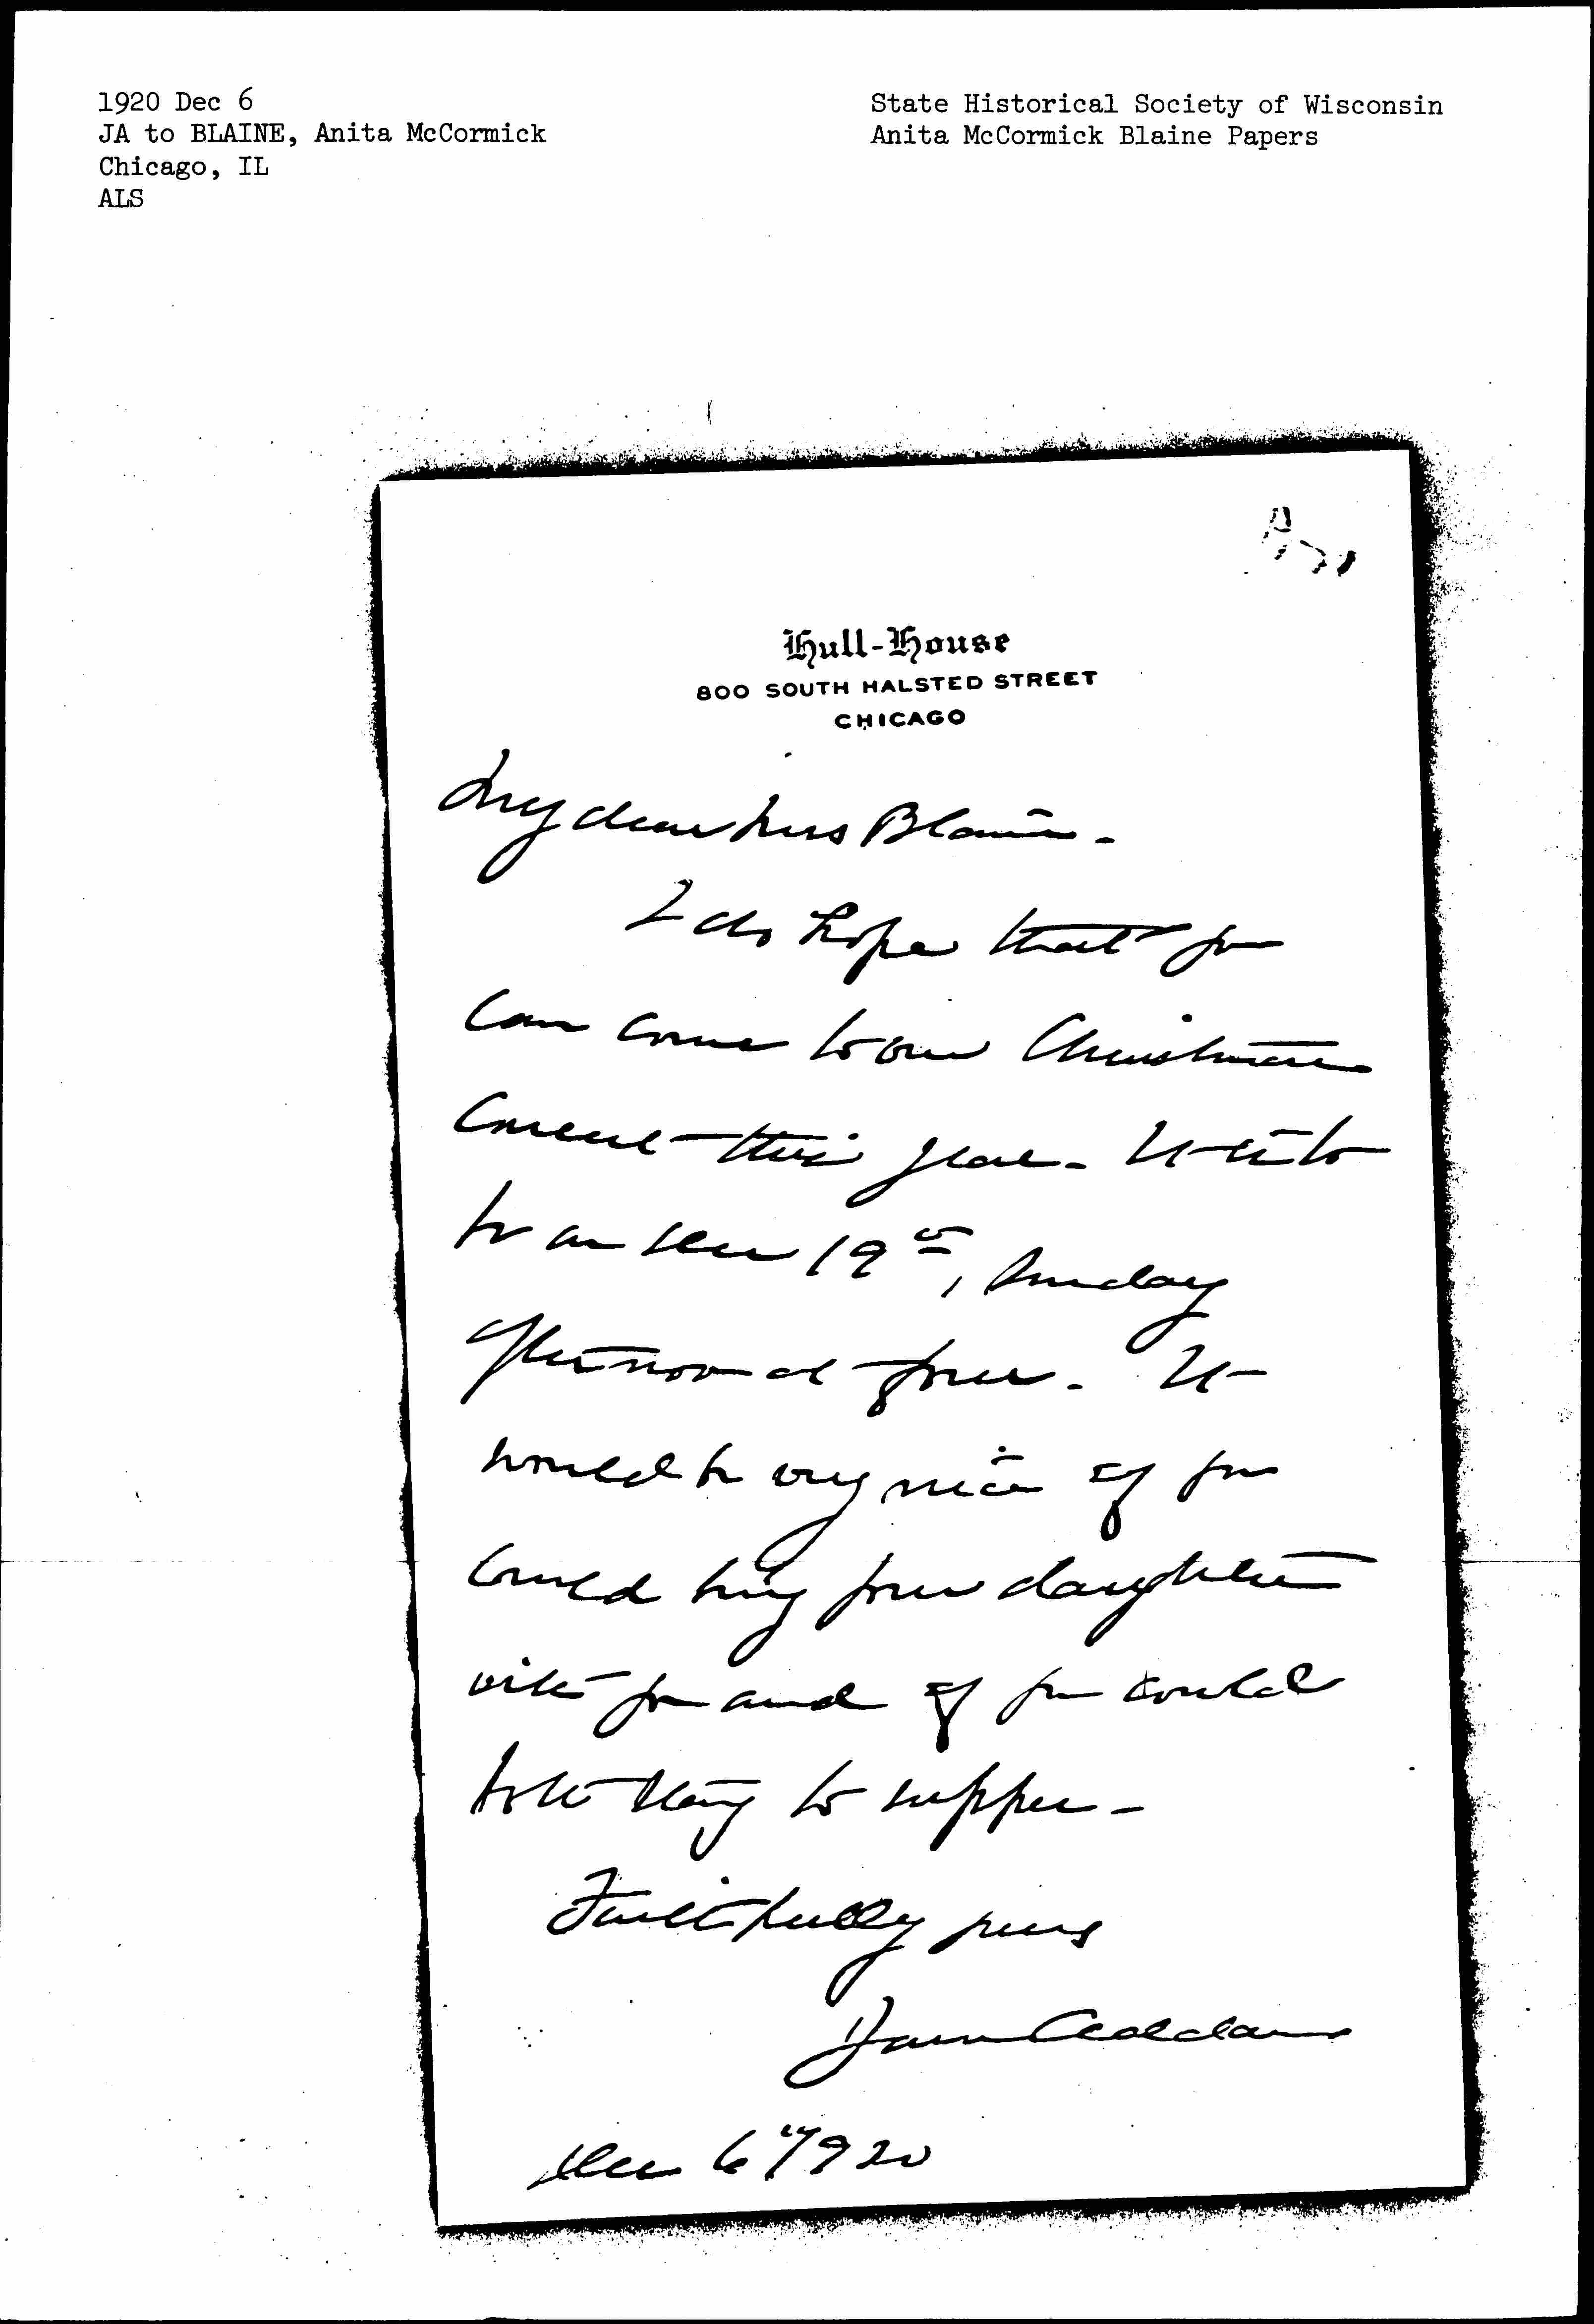 1920 Dec 6
JA to BLAINE, Anita McCormick
Chicago, IL
ALS
State Historical Society of Wisconsin
Anita McCormick Blaine Papers
Hull-House
800 SOUTH HALSTED STREET
CHICAGO
My dear Mrs Blaine -
I do hope that you
can come to our Christmas
Concert this year - It is to
be on Dec 19th, Sunday
afternoon at four - It
would be very nice if you
could bring your daughter
with you and if you could
both stay to supper -
Faithfully yours
Jane Addams
Dec 6" 1920